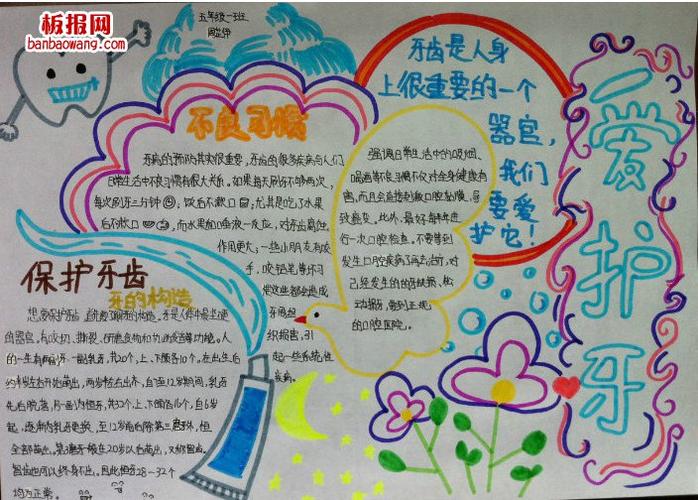 板报网
banbaowang.com
五年级一班
不良习惯
牙病的预防其实很重要，牙齿的很多疾病与人们
日常生活中不良习惯有很大关系。如果每天刷牙不够两次，
每次刷牙三分钟
饭后不漱口
尤其是吃了水果
后不漱口
而水果加唾液一反应，对牙齿腐蚀
作用更大；一些小朋友有咬
手，咬铅笔等坏习
使这些都会造成
组织损害，引
起一些系统性
疾病。
牙齿是人身
上很重要的一个
器官，
我们
要爱
护它！
强调日常生活中的吸烟、
喝酒等不良习惯不仅对全身健康有
害，而且会直接刺激口腔黏膜，导
致癌变。此外，最好每半年进
行一次口腔检查。不要等到
发生口腔疾病了再去治疗，对
己经发生的牙缺损，松
动拔牙，要到正规
的口腔医院。
爱护牙
保护牙齿
牙的构造
想要保护牙齿
牙的构造。牙是人体中最坚硬
的器官，有咬切、撕裂、
食物和协助发音等功能。人
的一生有两副牙一副乳牙，共20个，上、下颌各10个。在出生后
约半岁左右开始萌出，两岁
左右出齐，自6至12岁期间，乳牙
先后脱落，另一副为恒牙，共32个，上、下颌各16个，自6岁
起，逐渐与乳牙更换，至12岁前后除第三磨牙外，恒牙
全部萌出。第三磨牙一般在20岁以后萌出，又称智齿。
智齿也可以终身不出。因此恒牙28—32个
均为正常。